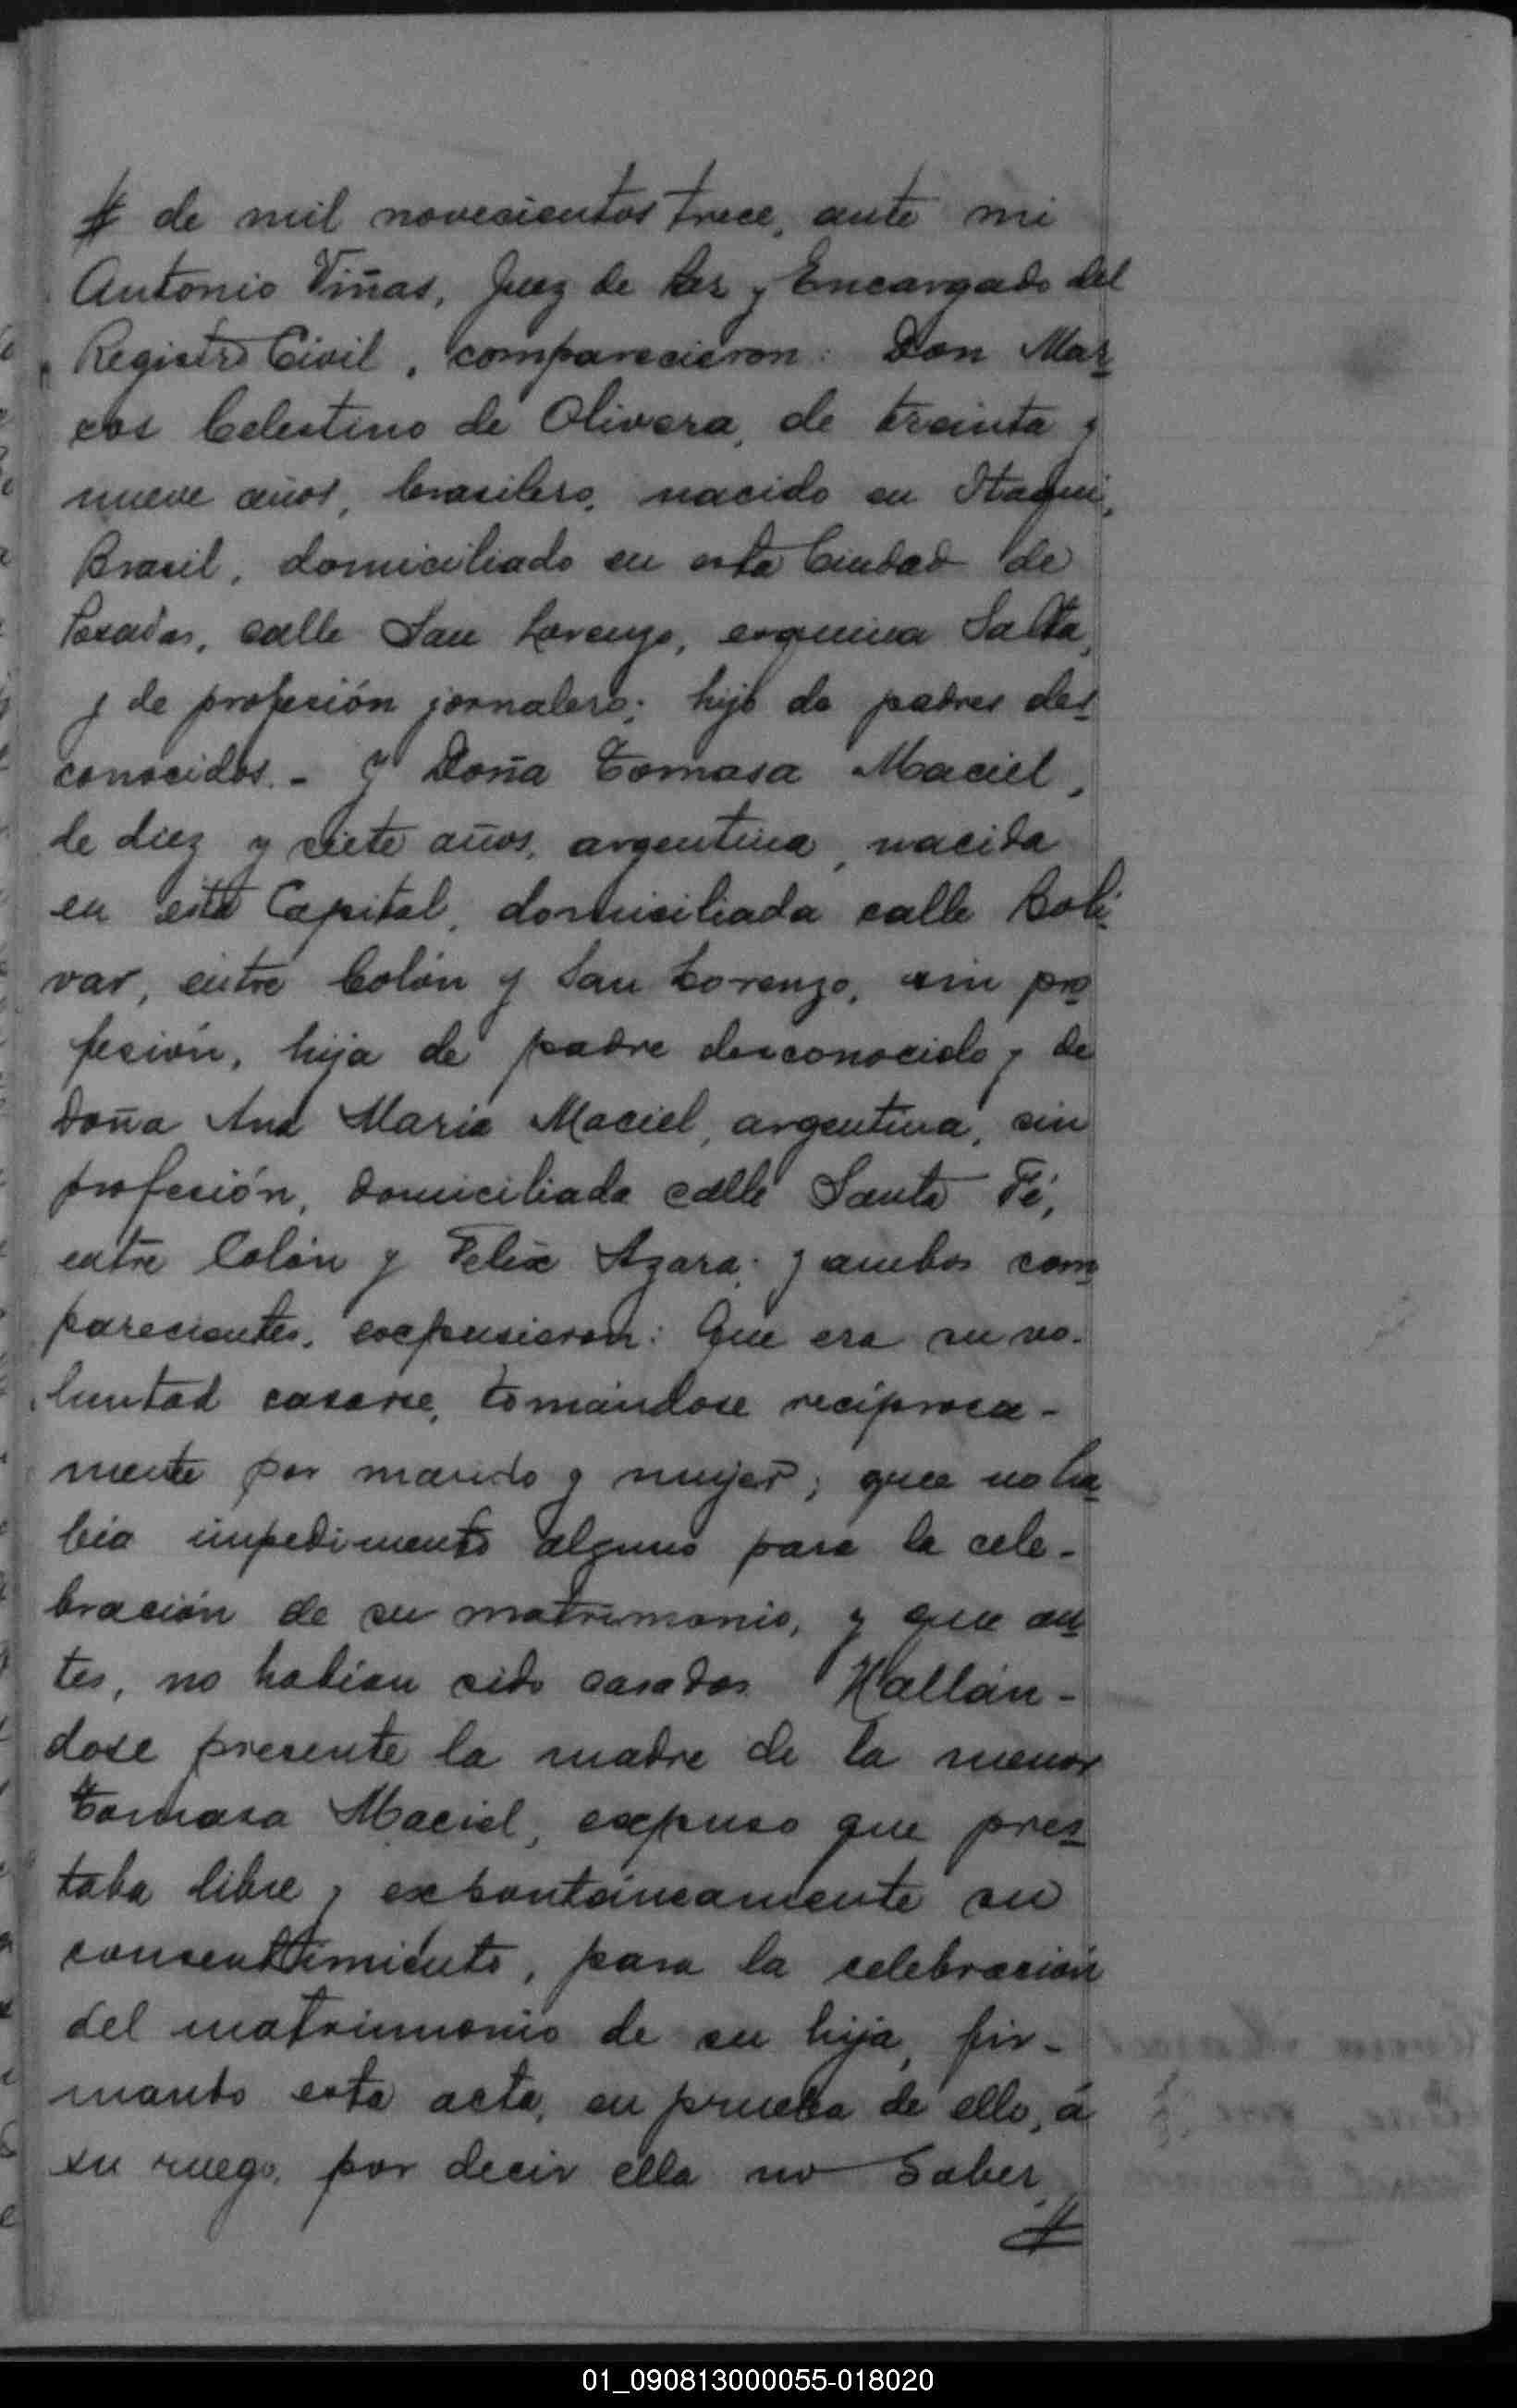 # de mil novecientos trece, ante mi
Antonio Viñas, Juez de Paz y Encargado del
Registro Civil, comparecieron: Don Mar-
cos Celestino de Olivera, de treinta y
nueve años, brasilero, nacido en Itaqui,
Brasil, domiciliado en esta Ciudad de
Posadas, calle San Lorenzo, esquina Salta,
y de profesión jornalero; hijo de padres des-
conocidos. - Y Doña Tomasa Maciel,
de diez y siete años, argentina, nacida
en esta Capital, domiciliada calle Boli-
var, entre Colón y San Lorenzo, sin pro-
fesión, hija de padre desconocido y de
Doña Ana Maria Maciel, argentina, sin
profesión, domiciliada calle Santa Fé,
entre Colón y Felix Azara; y ambos com-
parecientes, expusieron: Que era su vo-
luntad casarse, tomándose recíproca-
mente por marido y mujer; que no ha-
bia impedimento alguno para la cele-
bración de su matrimonio, y que an-
tes, no habian sido casados. Hallán-
dose presente la madre de la menor
Tomasa Maciel, expuso que pres-
taba libre y expontáneamente su
consentimiento, para la celebración
del matrimonio de su hija, fir-
mando esta acta, en prueba de ello, á
su ruego, por decir ella no saber,
#
01_090813000055-018020